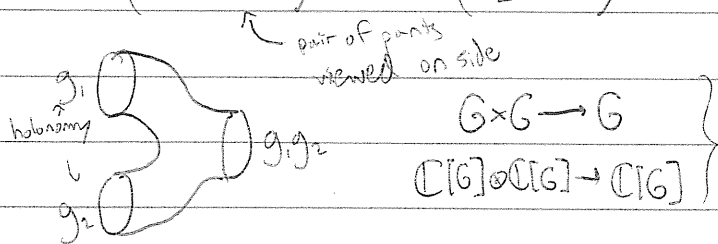 pair of pants
viewed on side
g₁
holonomy
g₂
g₁g₂
G×G → G
ℂ[G]⊗ℂ[G] → ℂ[G]